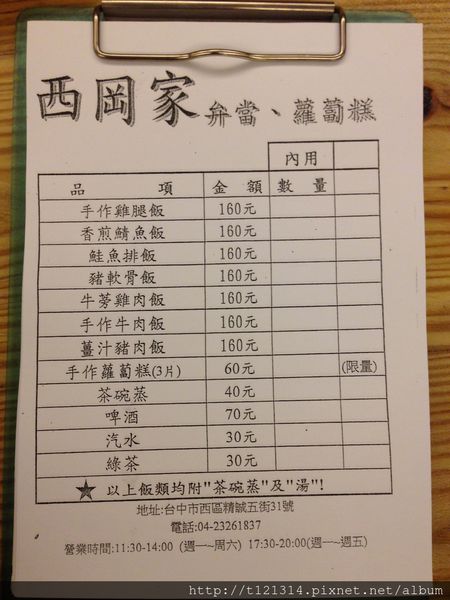 西岡家 弁當、蘿蔔糕
內用
品 項 金 額 數 量
手作雞腿飯 160元
香煎鯖魚飯 160元
鮭魚排飯 160元
豬軟骨飯 160元
牛蒡雞肉飯 160元
手作牛肉飯 160元
薑汁豬肉飯 160元
手作蘿蔔糕(3片) 60元 (限量)
茶碗蒸 40元
啤酒 70元
汽水 30元
綠茶 30元
★ 以上飯類均附"茶碗蒸"及"湯"!
地址:台中市西區精誠五街31號
電話:04-23261837
營業時間:11:30-14:00 (週一~周六) 17:30-20:00(週一~週五)
http://t121314.pixnet.net/album